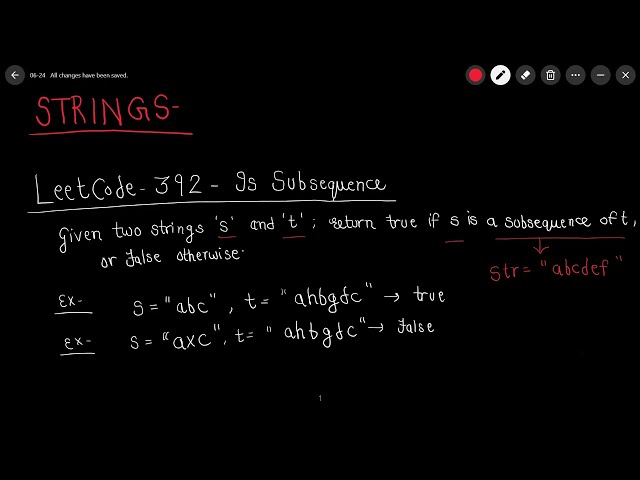 06-24 All changes have been saved.
STRINGS-
LeetCode - 392 - Is Subsequence
Given two strings 's' and 't'; return true if s is a subsequence of t,
or false otherwise.
str = "abcdef"
Ex- s = "abc", t = "ahbgdc" → true
Ex- s = "axc", t = "ahbgdc" → false
1